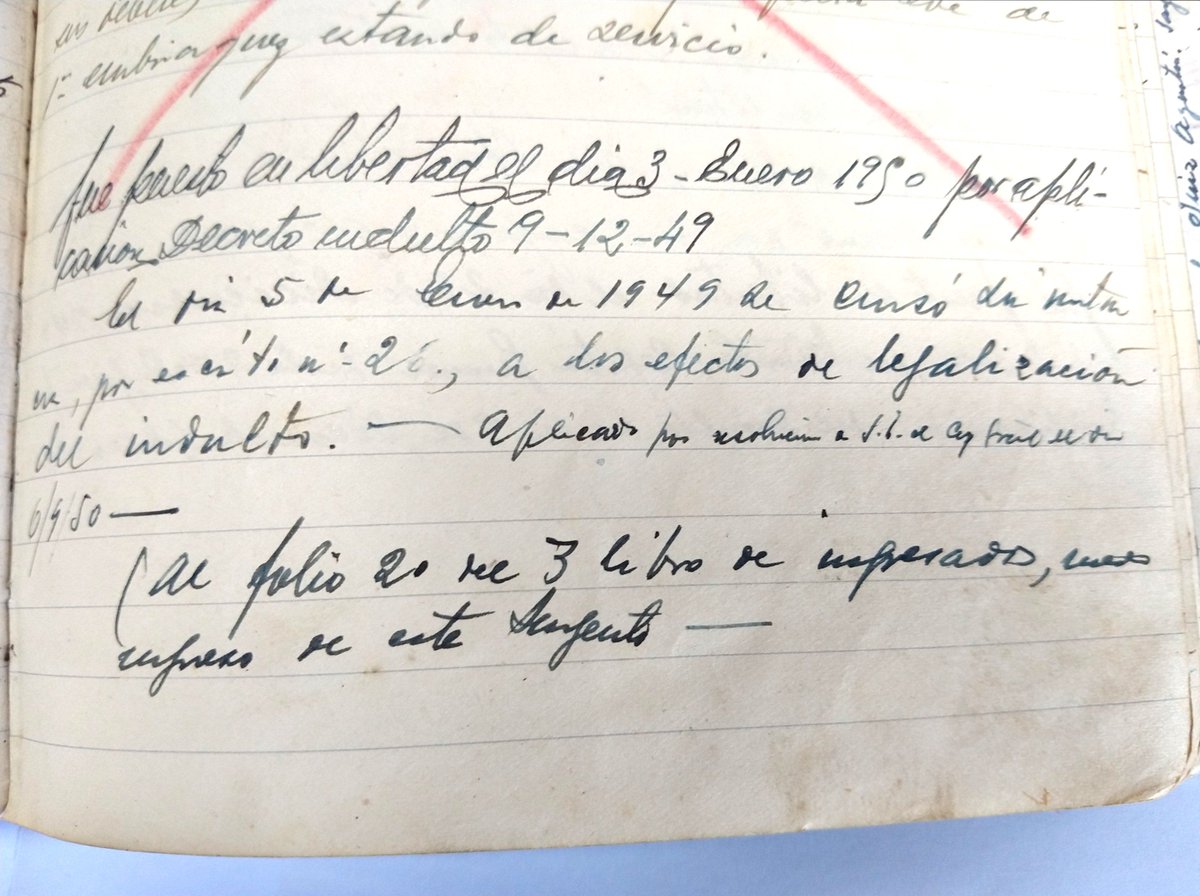 sus deberes
1ª embriaguez estando de servicio.
fue puesto en libertad el dia 3 - Enero 1950 por apli-
cación Decreto indulto 9-12-49
El dia 5 de Enero de 1949 se cursó
por escrito nº 26., a los efectos de legalización
del indulto. — Aplicado por
6/9/50 —
(Al folio 20 del 3 libro de ingresados, nuevo
ingreso de este Sargento —